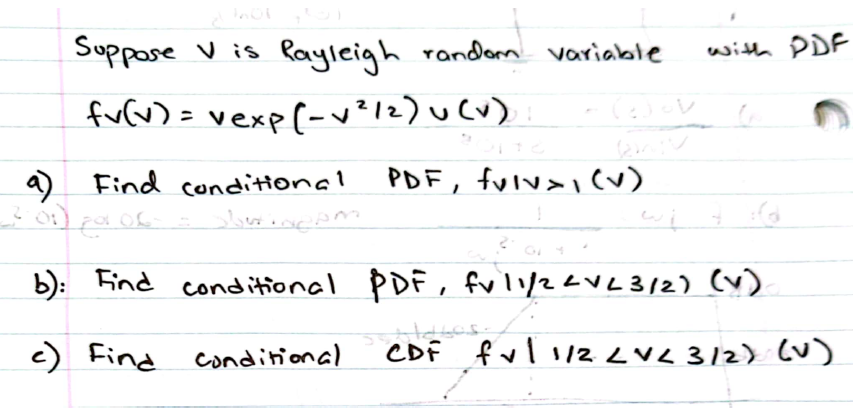 Suppose V is Rayleigh random variable with PDF
fv(v) = vexp(-v²/2) u(v)
a) Find conditional PDF, fv|v>1 (v)
b): Find conditional PDF, fv|1/2<v<3/2) (v)
c) Find conditional CDF fv| 1/2 <v< 3/2) (v)